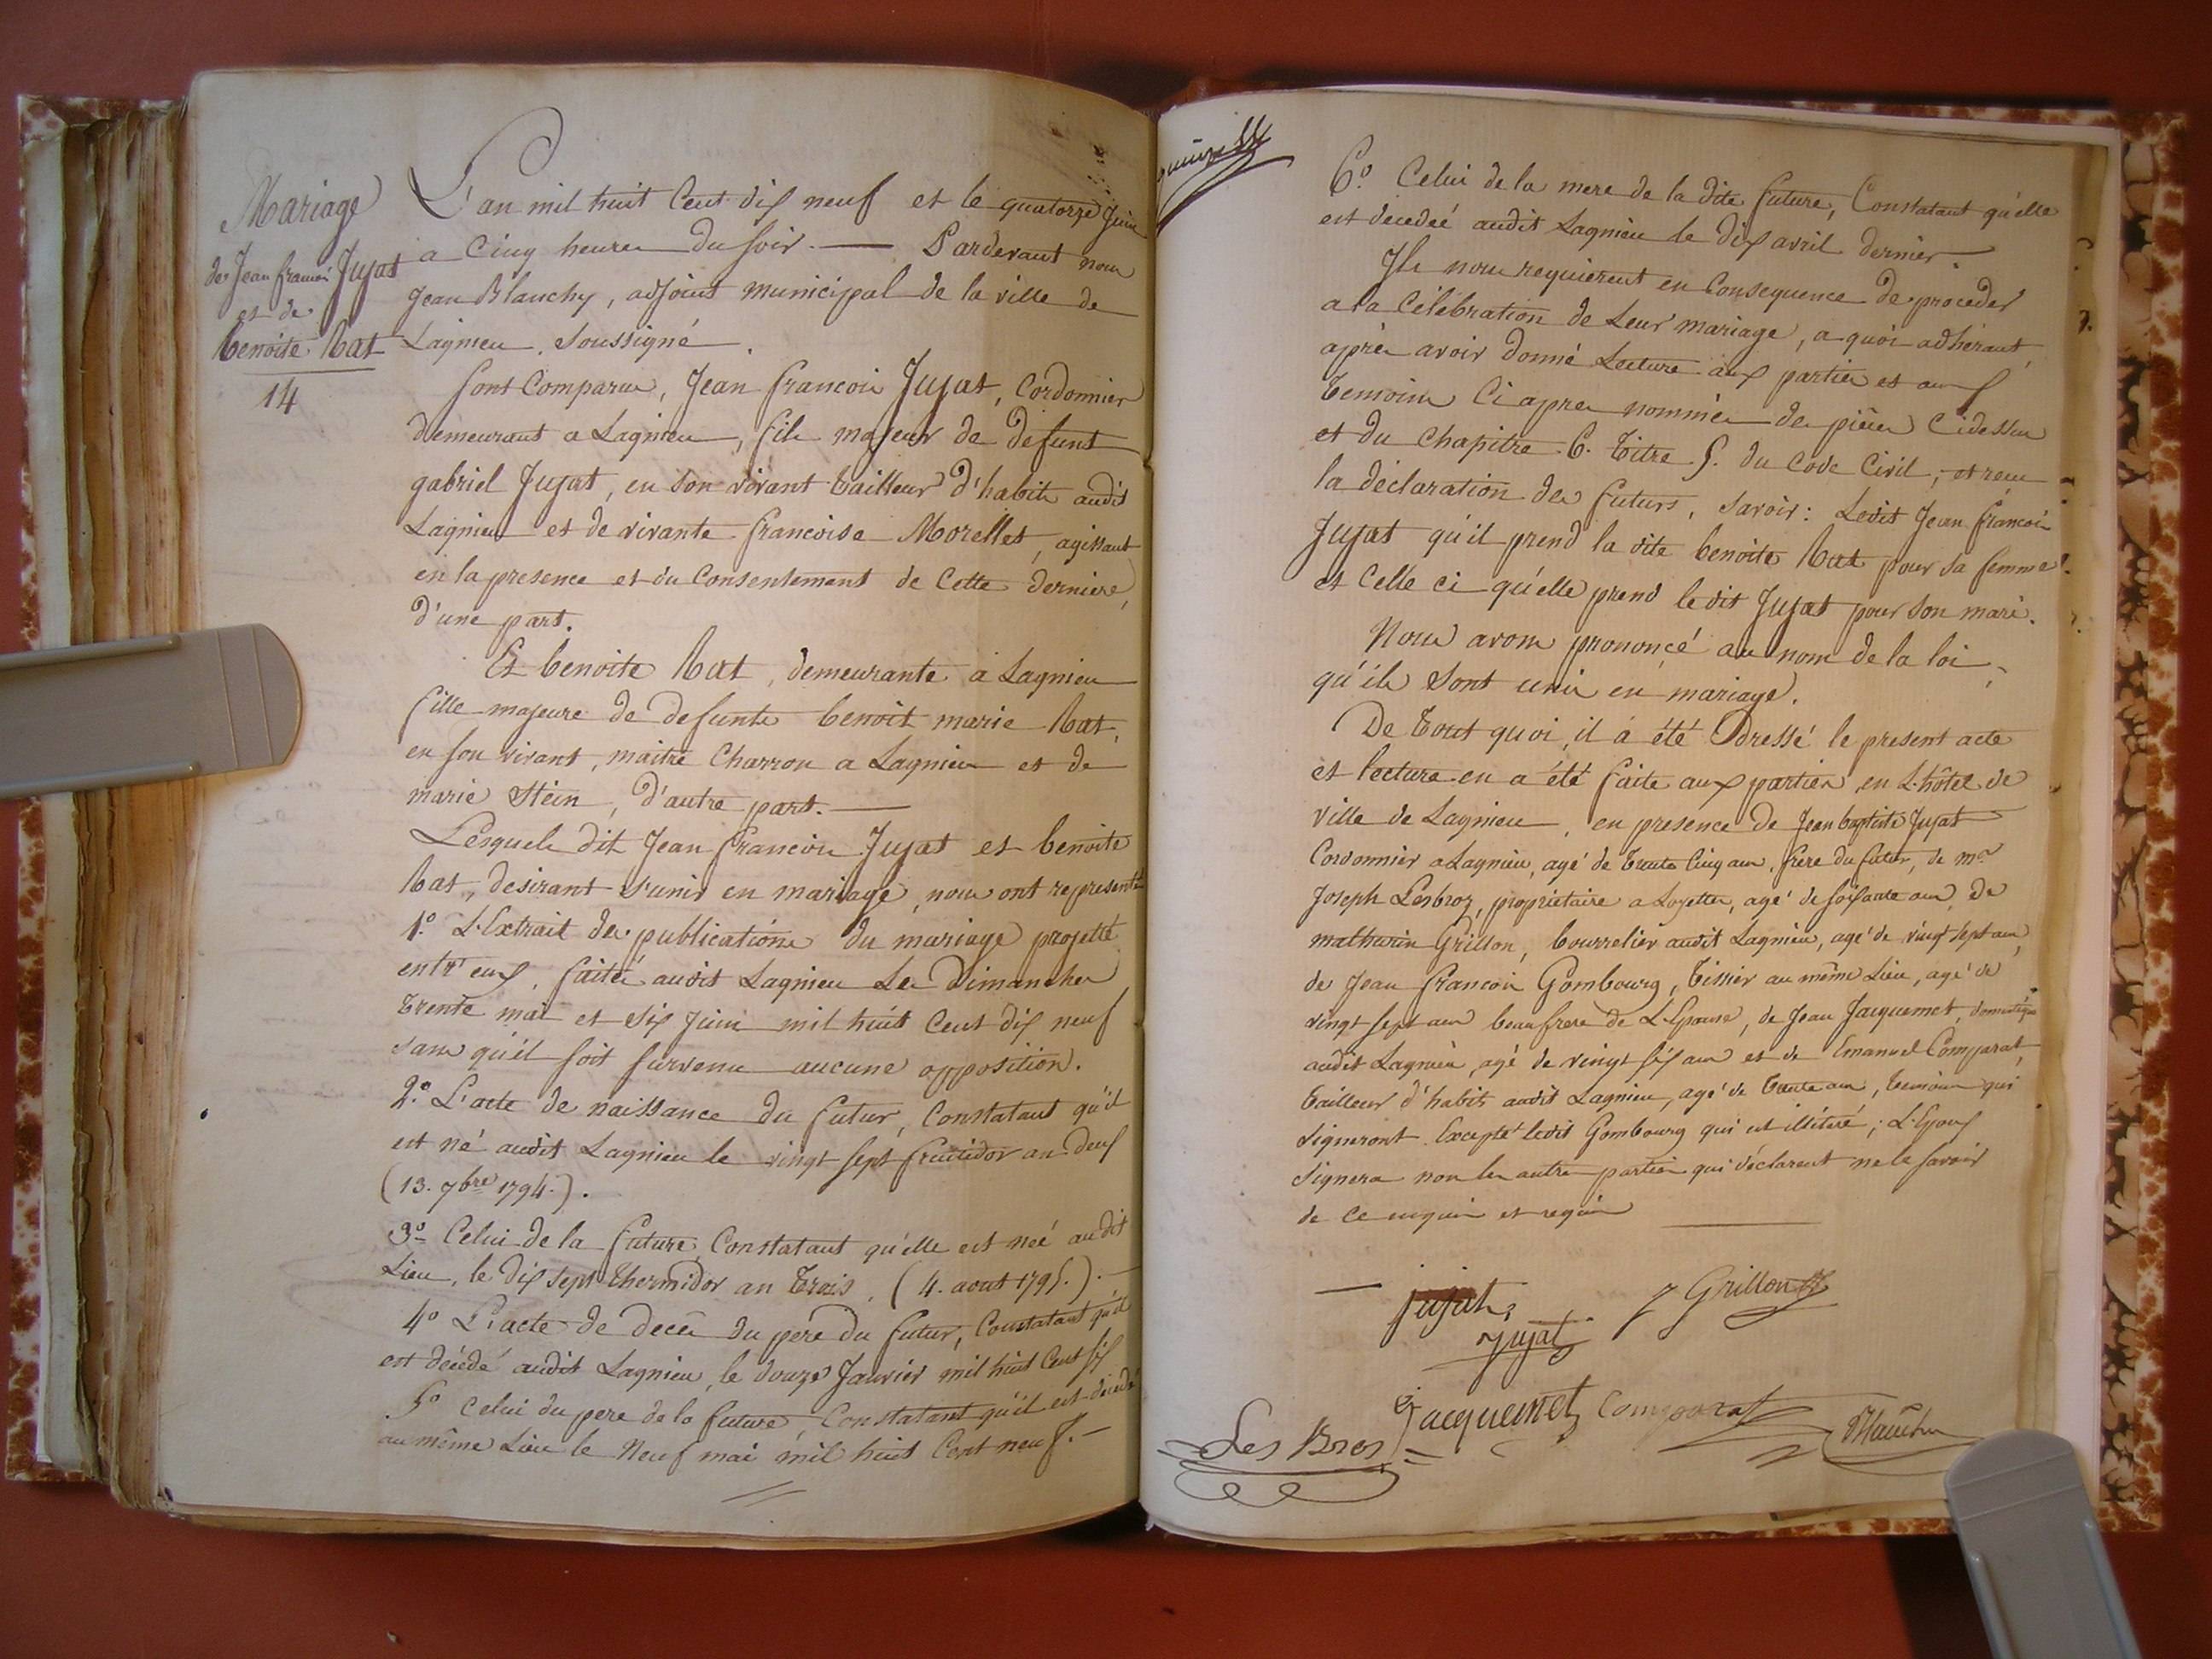 Mariage
de Jean francois Jujat
et de
benoite bat
14
L'an mil huit Cent dix neuf et le quatorze Juin
a Cinq heures du soir. — Pardevant nous
Jean Blanchy, adjoint municipal de la ville de
Lagnieu. Soussigné.
Sont Comparus, Jean francois Jujat, Cordonnier
demeurant a Lagnieu, fils majeur de défunt
gabriel Jujat, en son vivant tailleur d'habits audit
Lagnieu et de vivante francoise Morellet, agissant
en la presence et du Consentement de Cette derniere,
d'une part.
Et benoite bat, demeurante à Lagnieu
fille majeure de defunts benoit marie bat,
en son vivant, maitre Charron a Lagnieu et de
marie Stein, d'autre part. —
Lesquels dit Jean francois Jujat et benoite
bat, desirant s'unir en mariage, nous ont representé
1.º L'Extrait des publications du mariage projetté
entr'eux, faites audit Lagnieu Les Dimanches
trente mai et six Juin mil huit Cent dix neuf
sans qu'il soit survenu aucune opposition.
2.º L'acte de naissance du futur, Constatant qu'il
est né audit Lagnieu le vingt sept fructidor an deux
(13. 7bre 1794.).
3º Celui de la future Constatant qu'elle est née audit
Lieu, le dix sept thermidor an trois, (4. aout 1795.). —
4º L'acte de decès du pere du futur, Constatant qu'il
est décédé audit Lagnieu, le douze Janvier mil huit Cent six
5º Celui du pere de la future, Constatant qu'il est décédé
au même Lieu le Neuf mai mil huit Cent neuf. —
6.º Celui de la mere de la dite future, Constatant qu'elle
est decedeé audit Lagnieu le dix avril dernier.
Ils nous requierent en Consequence de proceder
a la Célébration de Leur mariage, a quoi adhérant,
après avoir donné Lecture aux parties et aux
temoins Ci apres nommés des pièces Cidessus
et du Chapitre 6. titre 5. du Code Civil; et recu
la déclaration des futurs, Savoir: Ledit Jean francois
Jujat qu'il prend la dite benoite bat pour sa femme
et Celle ci qu'elle prend ledit Jujat pour son mari.
Nous avons prononcé au nom de la loi
qu'ils Sont unis en mariage.
De tout quoi, il a été Dressé le present acte
et lecture en a été faite aux parties, en L'hôtel de
ville de Lagnieu, en presence de Jean baptiste Jujat
Cordonnier a Lagnieu, agé de trente Cinq ans, frere du futur, de mr
Joseph Lesbroz, propriétaire a Loyettes, agé de soixante ans, de
mathurin Grillon, bourrelier audit Lagnieu, agé de vingt sept ans,
de Jean francois Gombourg, tissier au même Lieu, agé de
vingt sept ans beaufrere de L'Epouse, de Jean Jacquemet, domestique
audit Lagnieu, agé de vingt six ans et de Emanuel Comparat,
tailleur d'habits audit Lagnieu, agé de trente ans, temoins qui
signeront Excepté ledit Gombourg qui est illétéré; L'Epoux
signera non les autres parties qui déclarent ne le savoir
de ce enquis et requis
jujat
Jujat
Grillon
Jacquemet
Comparat
Les Bros
Blanchy